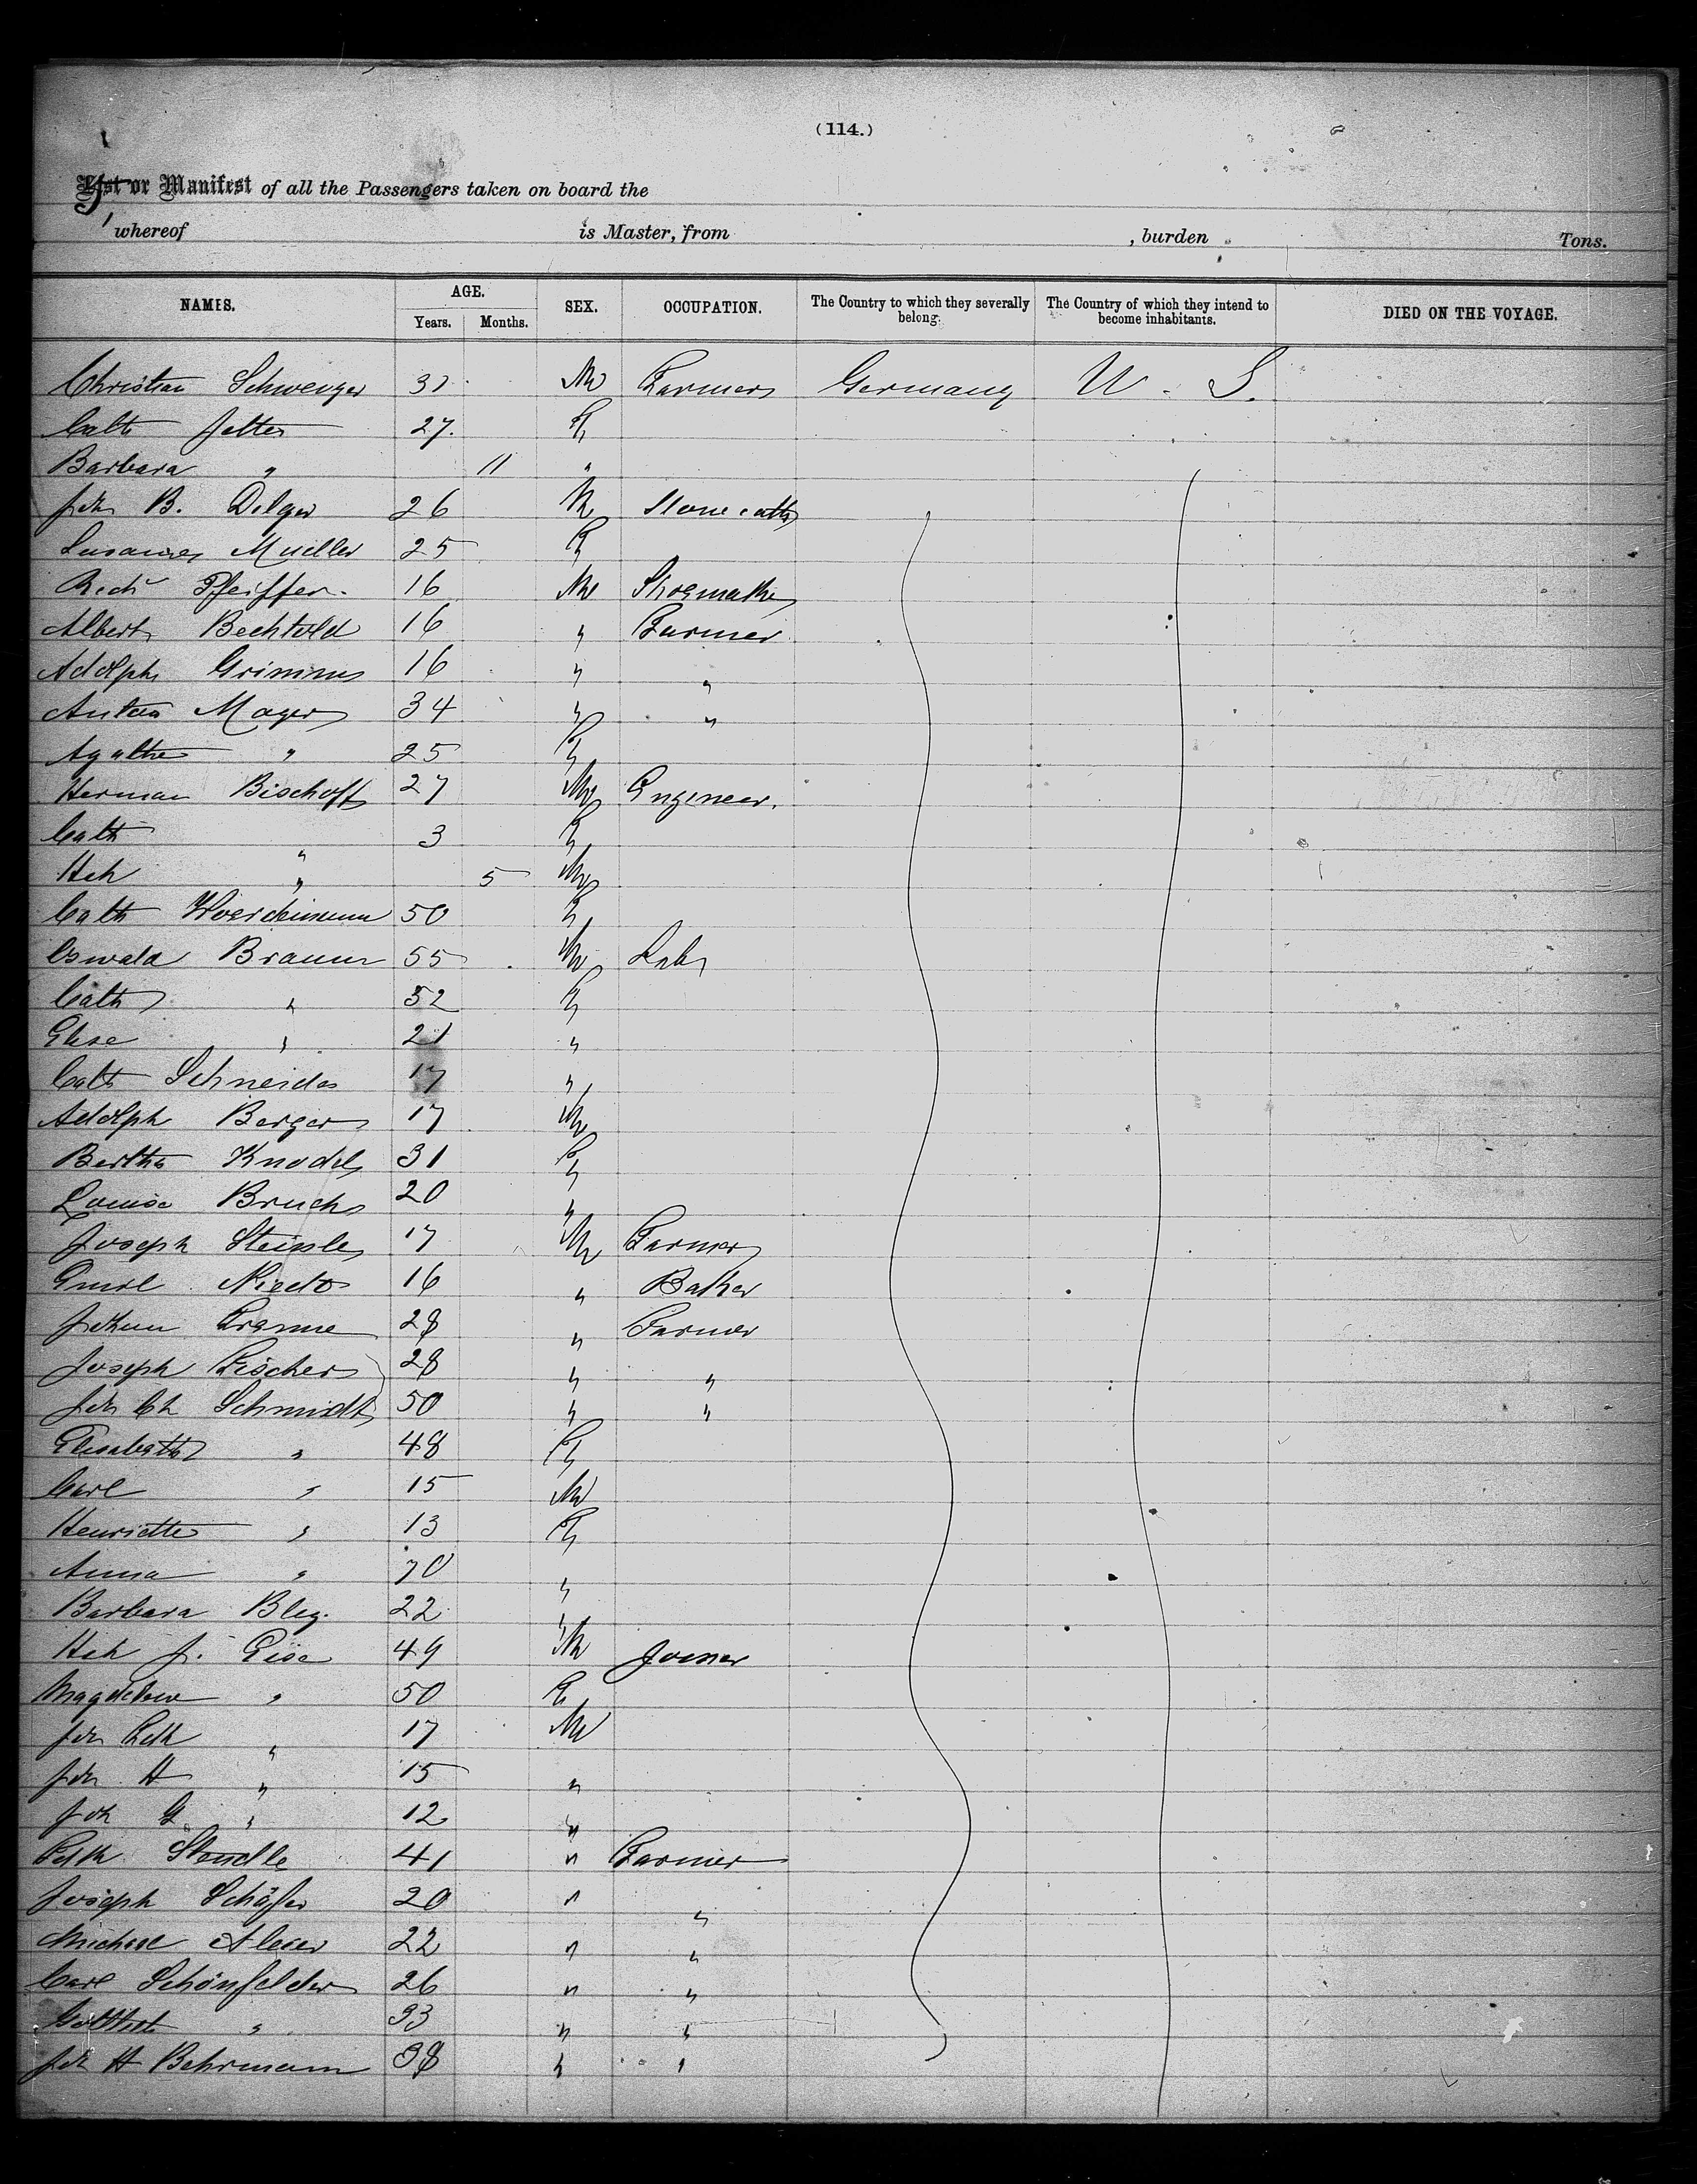 (114.)
List or Manifest of all the Passengers taken on board the
whereof is Master, from , burden Tons.
NAMES. AGE. SEX. OCCUPATION. The Country to which they severally belong. The Country of which they intend to become inhabitants. DIED ON THE VOYAGE.
Years. Months.
Christian 37 M Farmer Germany U. S.
Cath Jetter 27 F
Barbara " 11 "
Joh B. Dilger 26 M Stonecutter
Mueller 25 F
Pfeiffer 16 M Shoemaker
Albert Bechtold 16 " Farmer
Adolph Grimm 16 " "
Anton Mayer 34 " "
Agathe " 25 F
Herman Bischoff 27 M Engineer.
Cath " 3 F
Hch " 5 M
Cath 50 F
Oswald Braun 55 M Lab
Cath " 52 F
Elise " 21 "
Cath Schneider 17 "
Adolph Berger 17 M
Bertha Knodel 31 F
Louise Bruch 20 "
Joseph 17 M Farmer
Emil 16 " Baker
28 " Farmer
Joseph Fischer 28 " "
Joh Ch Schmidt 50 " "
Elisabeth " 48 F
Carl " 15 M
Henriette " 13 F
Anna " 70 "
Barbara 22 "
Hch J. 49 M Joiner
" 50 F
Joh " 17 M
Joh H " 15 "
Joh G " 12 "
41 " Farmer
Joseph Schäfer 20 " "
22 " "
Carl Schönfelder 26 " "
" 33 " "
Joh H Behrmann 38 " "